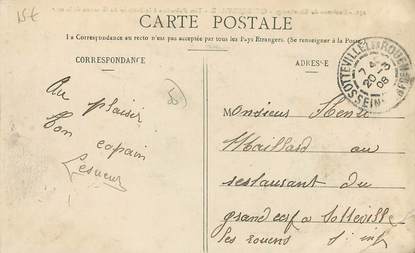 15€
CARTE POSTALE
La Correspondance au recto n'est pas acceptée par tous les Pays Etrangers. (Se renseigner à la Poste.)
CORRESPONDANCE
ADRESSE
SOTTEVILLE-LÈS-ROUEN
7 4
20 - 3
08
Au plaisir
Ton copain
Lesueur
Monsieur Henri
Maillard au
restaurant du
grand cerf a Sotteville
les rouens S. inf